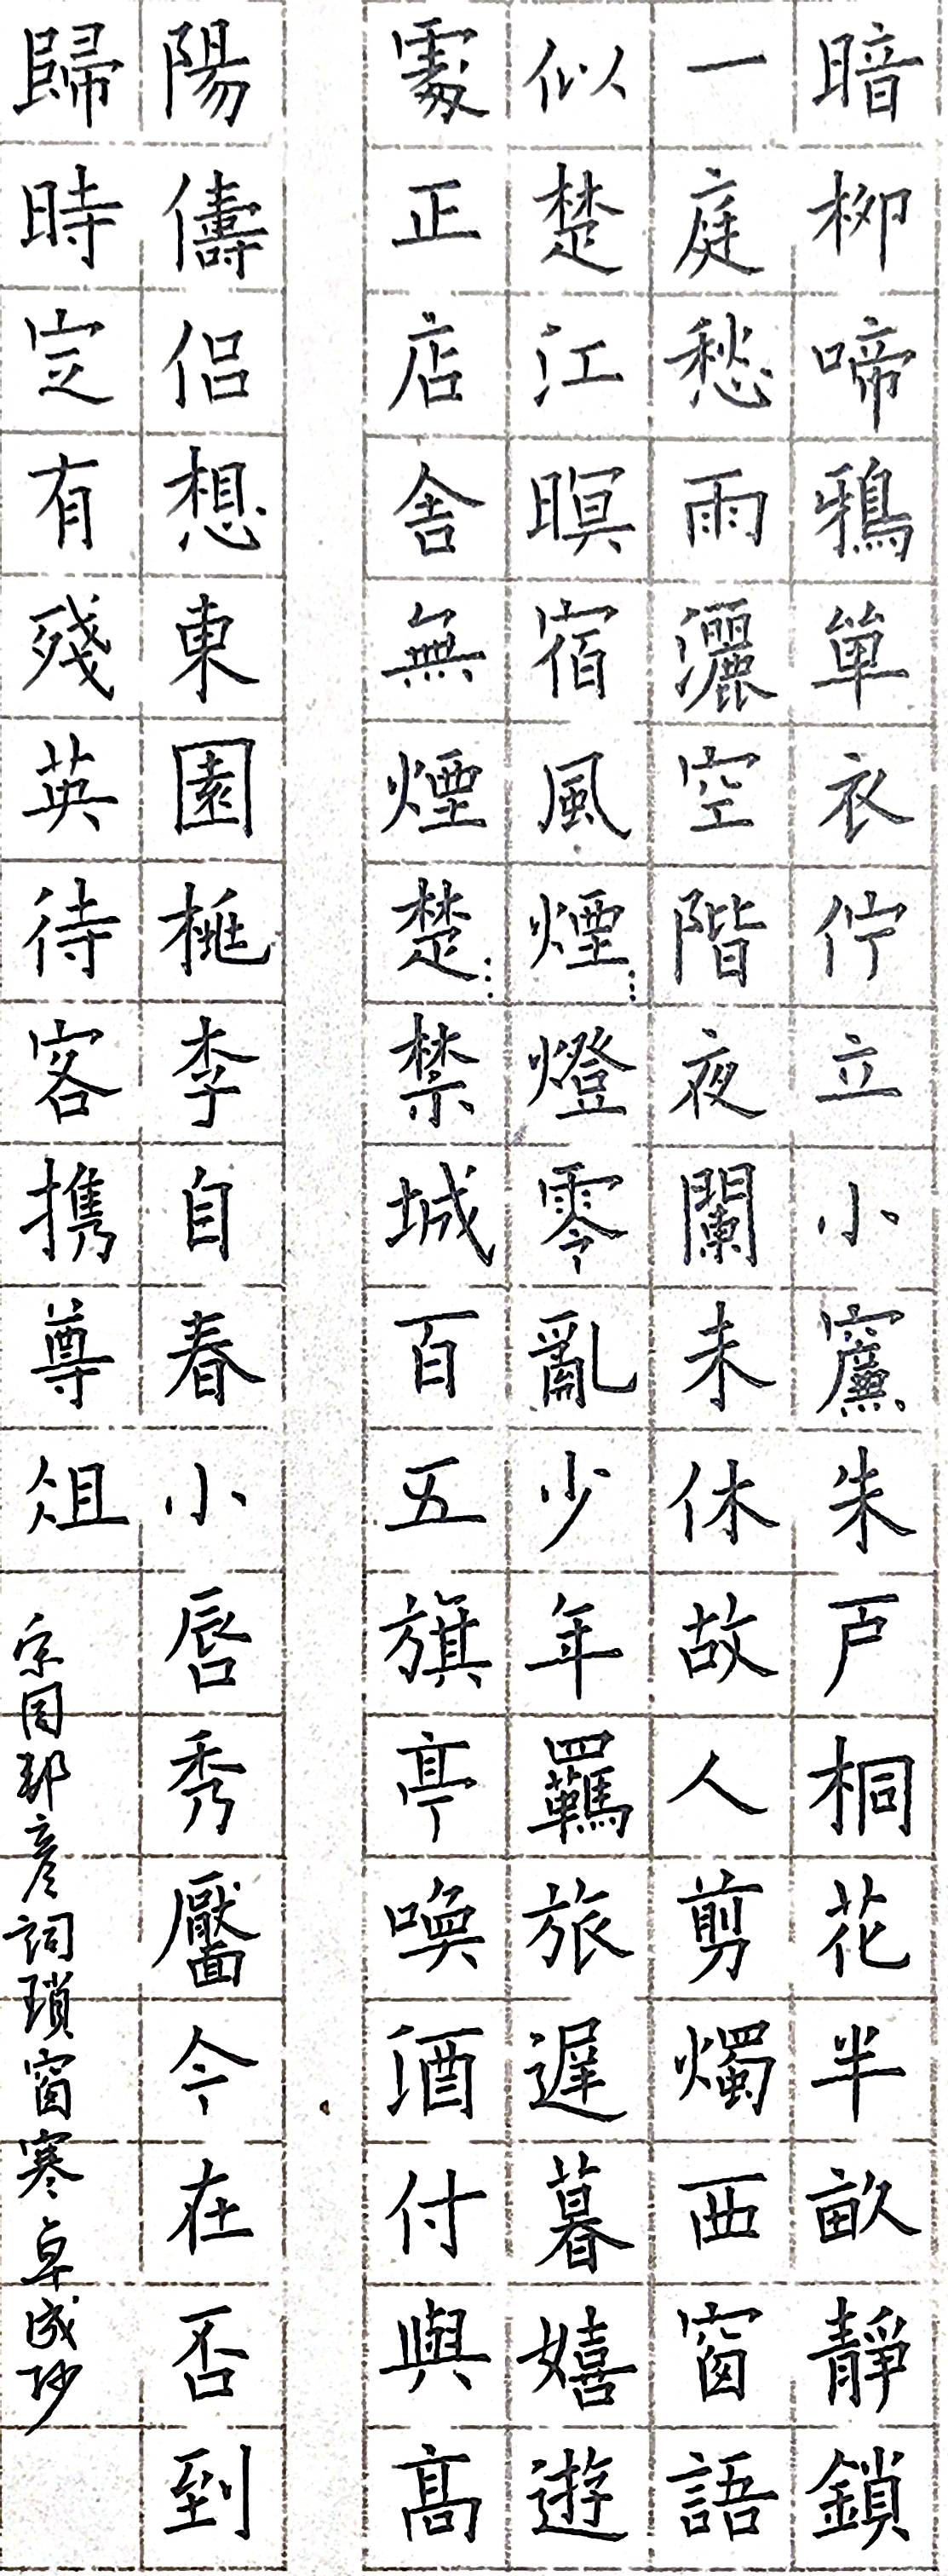 暗柳啼鴉單衣佇立小簾朱戶桐花半畝靜鎖
一庭愁雨灑空階夜闌未休故人剪燭西窗語
似楚江暝宿風煙燈零亂少年羈旅遲暮嬉遊
處正店舍無煙楚禁城百五旗亭喚酒付與高
陽儔侶想東園桃李自春小唇秀靨今在否到
歸時定有殘英待客攜尊俎
宋周邦彥詞瑣窗寒卓成抄